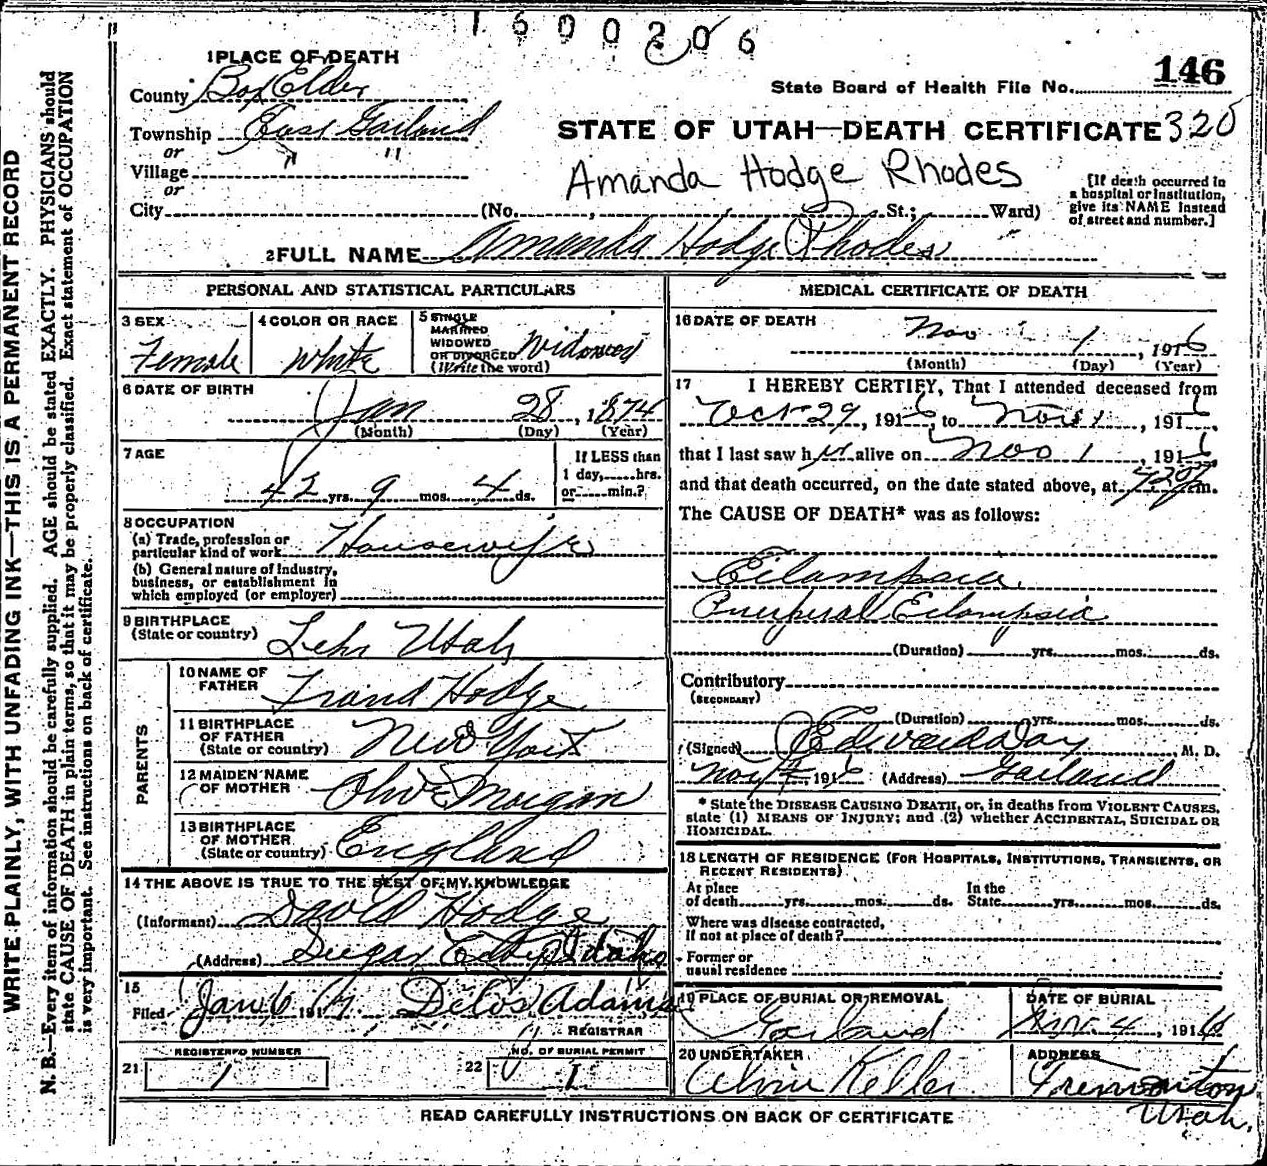 1600206
1 PLACE OF DEATH
County Box Elder
State Board of Health File No. 146
Township East Garland
STATE OF UTAH—DEATH CERTIFICATE 320
or
Village " "
or
Amanda Hodge Rhodes
[If death occurred in a hospital or institution, give its NAME instead of street and number.]
City (No. , St.; Ward)
2 FULL NAME Amanda Hodge Rhodes
PERSONAL AND STATISTICAL PARTICULARS
3 SEX
Female
4 COLOR OR RACE
White
5 SINGLE
MARRIED
WIDOWED
OR DIVORCED
(Write the word)
Widowed
6 DATE OF BIRTH
Jan 28, 1874
(Month) (Day) (Year)
7 AGE
42 yrs. 9 mos. 4 ds.
If LESS than
1 day, hrs.
or min.?
8 OCCUPATION
(a) Trade, profession or
particular kind of work Housewife
(b) General nature of Industry,
business, or establishment in
which employed (or employer)
9 BIRTHPLACE
(State or country) Lehi Utah
PARENTS
10 NAME OF
FATHER Hodge
11 BIRTHPLACE
OF FATHER
(State or country) New York
12 MAIDEN NAME
OF MOTHER Olive Morgan
13 BIRTHPLACE
OF MOTHER
(State or country) England
14 THE ABOVE IS TRUE TO THE BEST OF MY KNOWLEDGE
(Informant) David Hodge
(Address) Sugar City Idaho
15
Filed Jan 6 1917 Delos Adams
REGISTRAR
21 REGISTERED NUMBER
1
22 NO. OF BURIAL PERMIT
1
MEDICAL CERTIFICATE OF DEATH
16 DATE OF DEATH
Nov 1, 1916
(Month) (Day) (Year)
17 I HEREBY CERTIFY, That I attended deceased from
Oct 29, 1916, to Nov 1, 1916,
that I last saw her alive on Nov 1, 1916
and that death occurred, on the date stated above, at m.
The CAUSE OF DEATH* was as follows:
Eclampsia
Puerperal Eclampsia
(Duration) yrs. mos. ds.
Contributory
(SECONDARY)
(Duration) yrs. mos. ds.
(Signed) Edward Day M. D.
Nov 1916 (Address) Garland
* State the DISEASE CAUSING DEATH, or, in deaths from VIOLENT CAUSES,
state (1) MEANS OF INJURY; and (2) whether ACCIDENTAL, SUICIDAL OR
HOMICIDAL.
18 LENGTH OF RESIDENCE (FOR HOSPITALS, INSTITUTIONS, TRANSIENTS, OR
RECENT RESIDENTS)
At place In the
of death yrs. mos. ds. State yrs. mos. ds.
Where was disease contracted,
If not at place of death?
Former or
usual residence
19 PLACE OF BURIAL OR REMOVAL
Garland
DATE OF BURIAL
Nov. 4, 1916
20 UNDERTAKER
Alvin Keller
ADDRESS
Tremonton
Utah.
READ CAREFULLY INSTRUCTIONS ON BACK OF CERTIFICATE
WRITE PLAINLY, WITH UNFADING INK—THIS IS A PERMANENT RECORD
N. B.—Every item of information should be carefully supplied. AGE should be stated EXACTLY. PHYSICIANS should
state CAUSE OF DEATH in plain terms, so that it may be properly classified. Exact statement of OCCUPATION
is very important. See instructions on back of certificate.